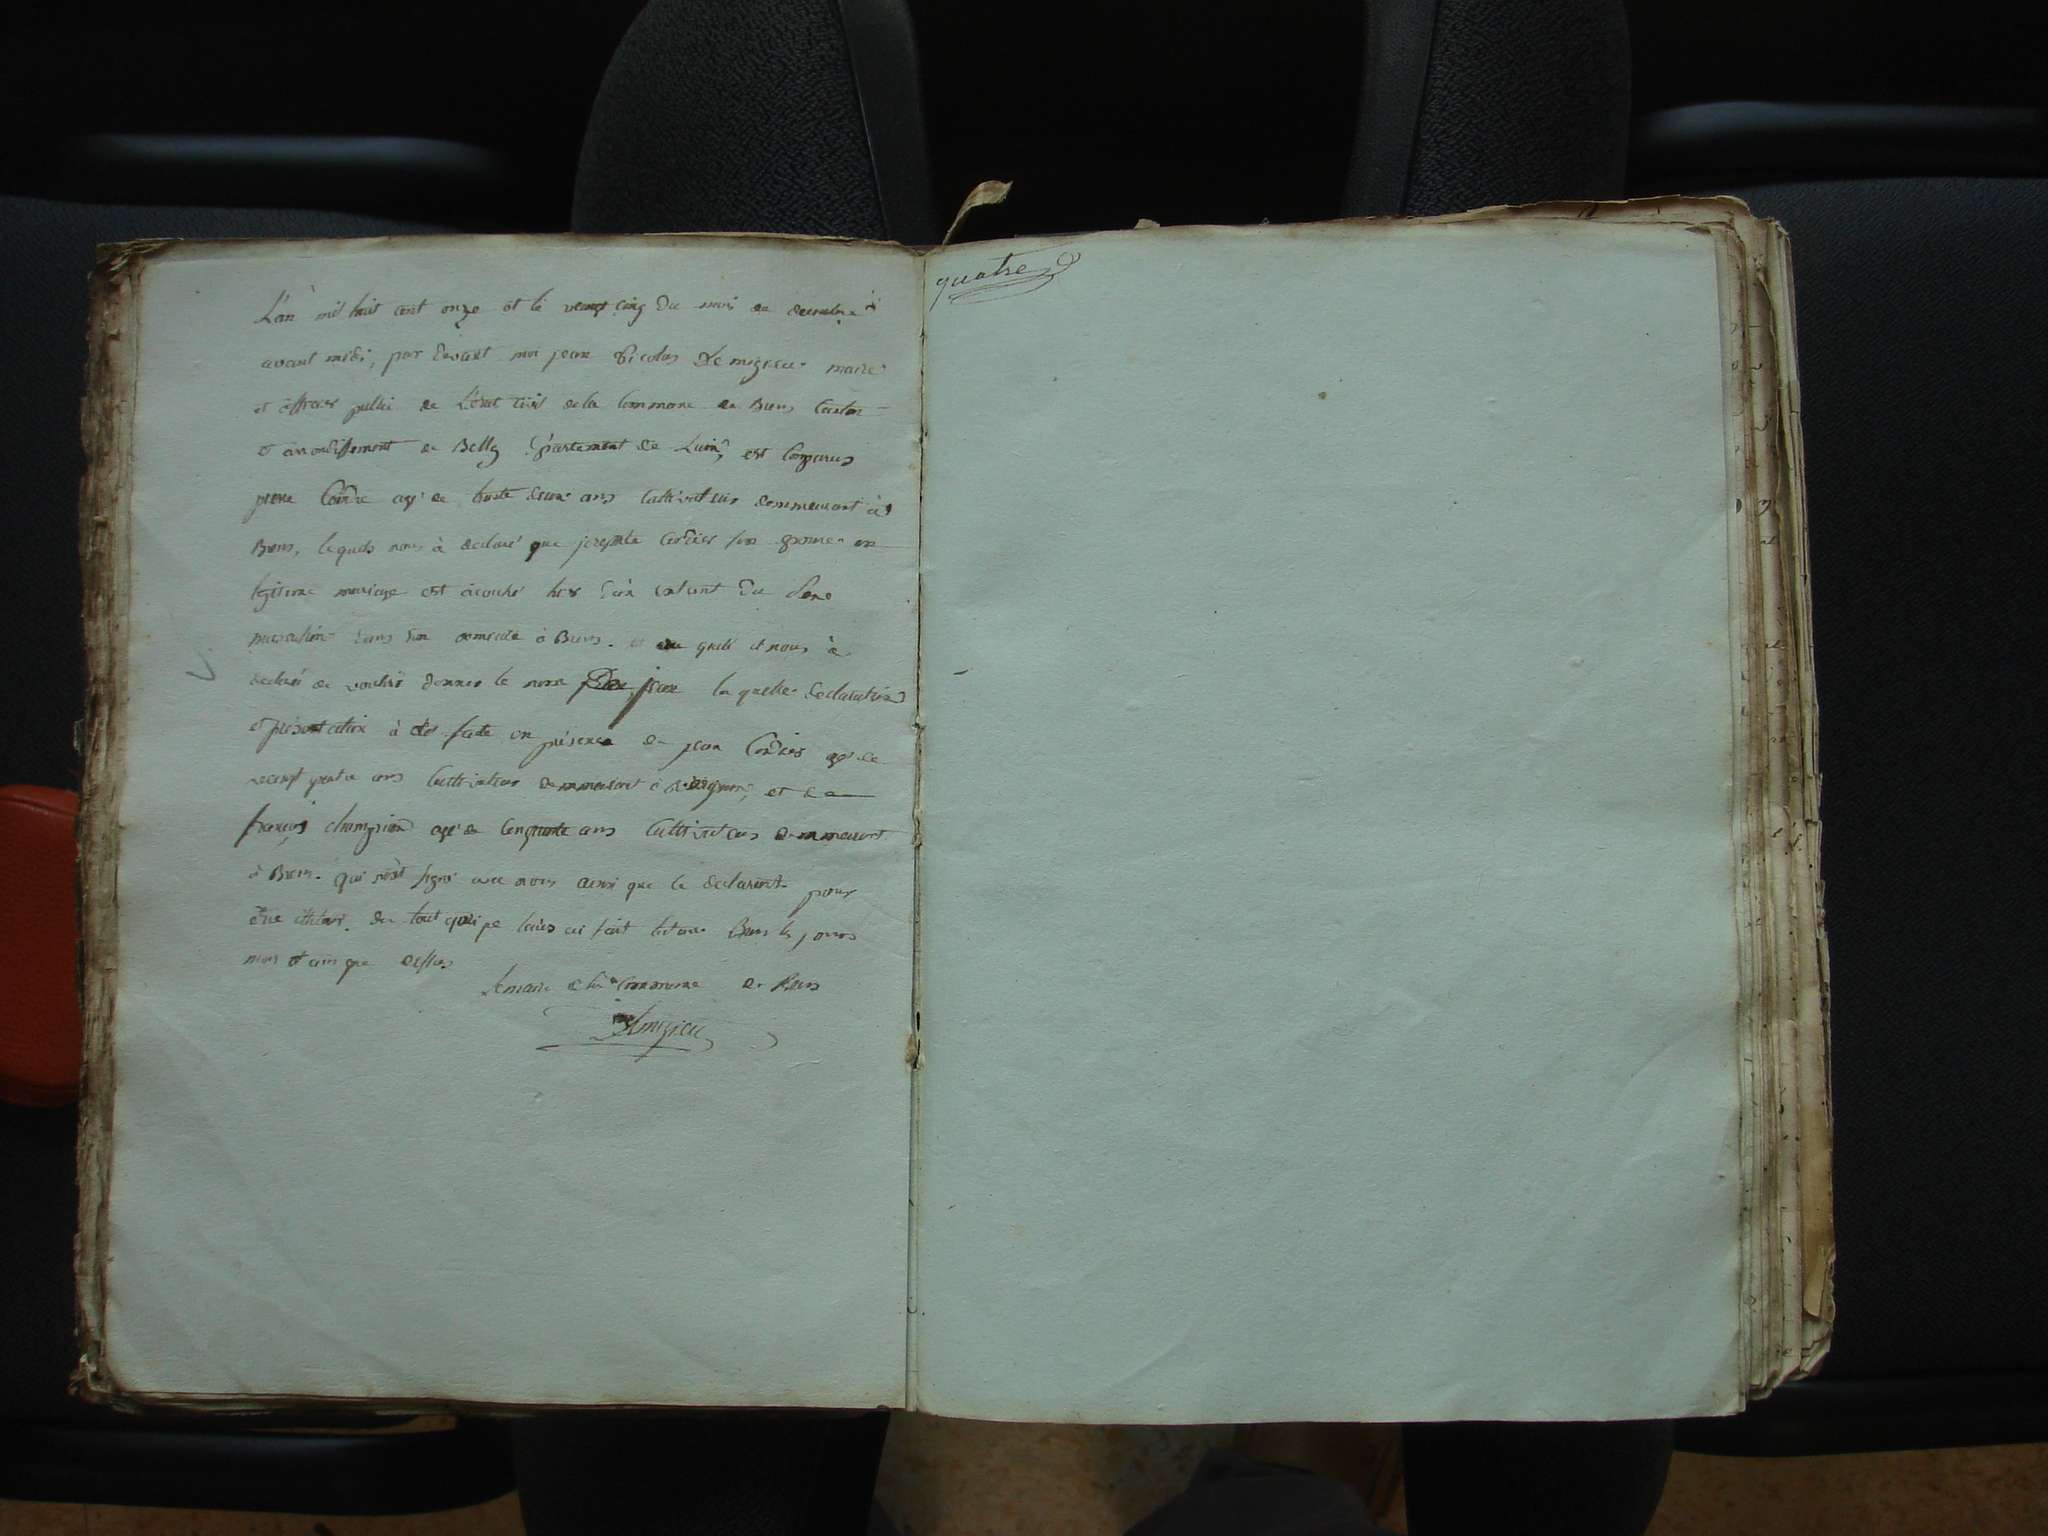 L'an mil huit cent onze et le vengt cinq du mois de decembre à
avant midi, par devant moi jean Nicolas Demigieu maire
et officier publie de L'état civil de la Commune de Bens Canton
et arrondissement de Belley département de Lain, est Comparus
pierre agé de trante deux ans Cultivateur demmeurant à
Bens, lequels nous à declaré que Cordier son epouse en
legitime mariage est acouché hier d'un enfant du sexe
masculin dans son domicile à Bens. et au quel il nous à
declaré de vouloir donner le nom jean la quelle declaration
et présentation à été faite en présence de jean Cordier agé de
vengt quatre ans Cultivateur demmeurant à et de
françois champion agé de Cenquante ans Cultivateur demmeurant
à Bens. qui n'ont signé avec nous ainsi que le declarent pour
être de tout ai fait Bens les jours
mois et an que dessus
Le maire de la Commune de Bens
Demigieu
quatre